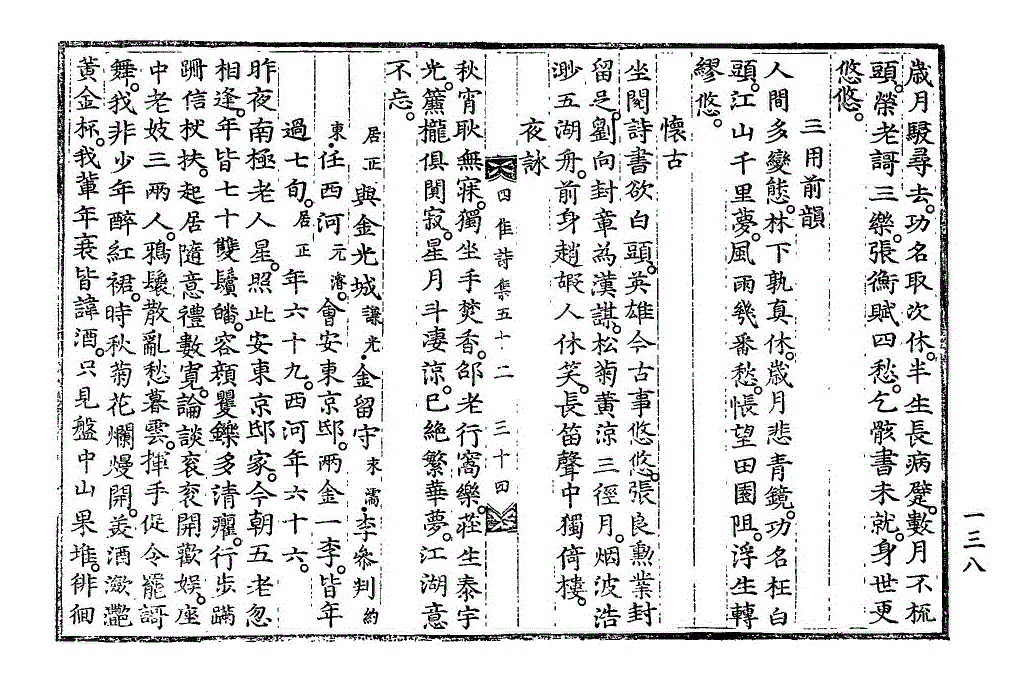 歲月駸尋去。功名取次休。半生長病躄。數月不梳
頭。榮老謌三樂。張衡賦四愁。乞骸書未就。身世更
悠悠。
三用前韻
人間多變態。林下孰真休。歲月悲青鏡。功名枉白
頭。江山千里夢。風雨幾番愁。悵望田園阻。浮生轉
繆悠。
懷古
坐閱詩書欲白頭。英雄今古事悠悠。張良勲業封
留足。劉向封章為漢謀。松菊黃涼三徑月。烟波浩
渺五湖舟。前身趙嘏人休笑。長笛聲中獨倚樓。
夜詠
四佳詩集五十二 三十四
秋宵耿耿無寐。獨坐手焚香。邵老行窩樂。莊生泰宇
光。簾櫳俱闃寂。星月斗凄涼。已絕繁華夢。江湖意
不忘。
居正與金光城謙光·金留守來濡·李參判約
東·任西河元濬。會安東京邸。兩金一李。皆年
過七旬。居正年六十九。西河年六十六。
昨夜南極老人星。照此安東京邸家。今朝五老忽
相逢。年皆七十雙鬢皤。容顏矍鑠多清癯。行步蹣
跚信杖扶。起居隨意禮數寬。論談袞袞開歡娛。座
中老妓三兩人。鴉鬟散亂愁暮雲。揮手促令罷謌
舞。我非少年醉紅裙。時秋菊花爛熳開。羙酒瀲灧
黃金杯。我輩年衰皆諱酒。只見盤中山果堆。徘徊
一三八